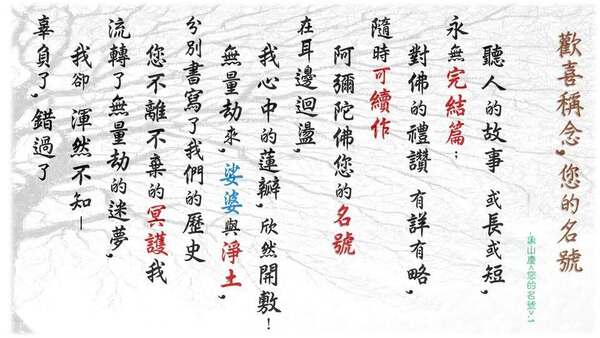 歡喜稱念，您的名號
-京山慶<您的名號>-1
聽人的故事 或長或短，
永無完結篇；
對佛的禮讚 有詳有略，
隨時可續作
阿彌陀佛您的名號
在耳邊迴盪，
我心中的蓮瓣，欣然開敷！
無量劫來，娑婆與淨土，
分別書寫了我們的歷史
您不離不棄的冥護我
流轉了無量劫的迷夢，
我卻 渾然不知—
辜負了，錯過了